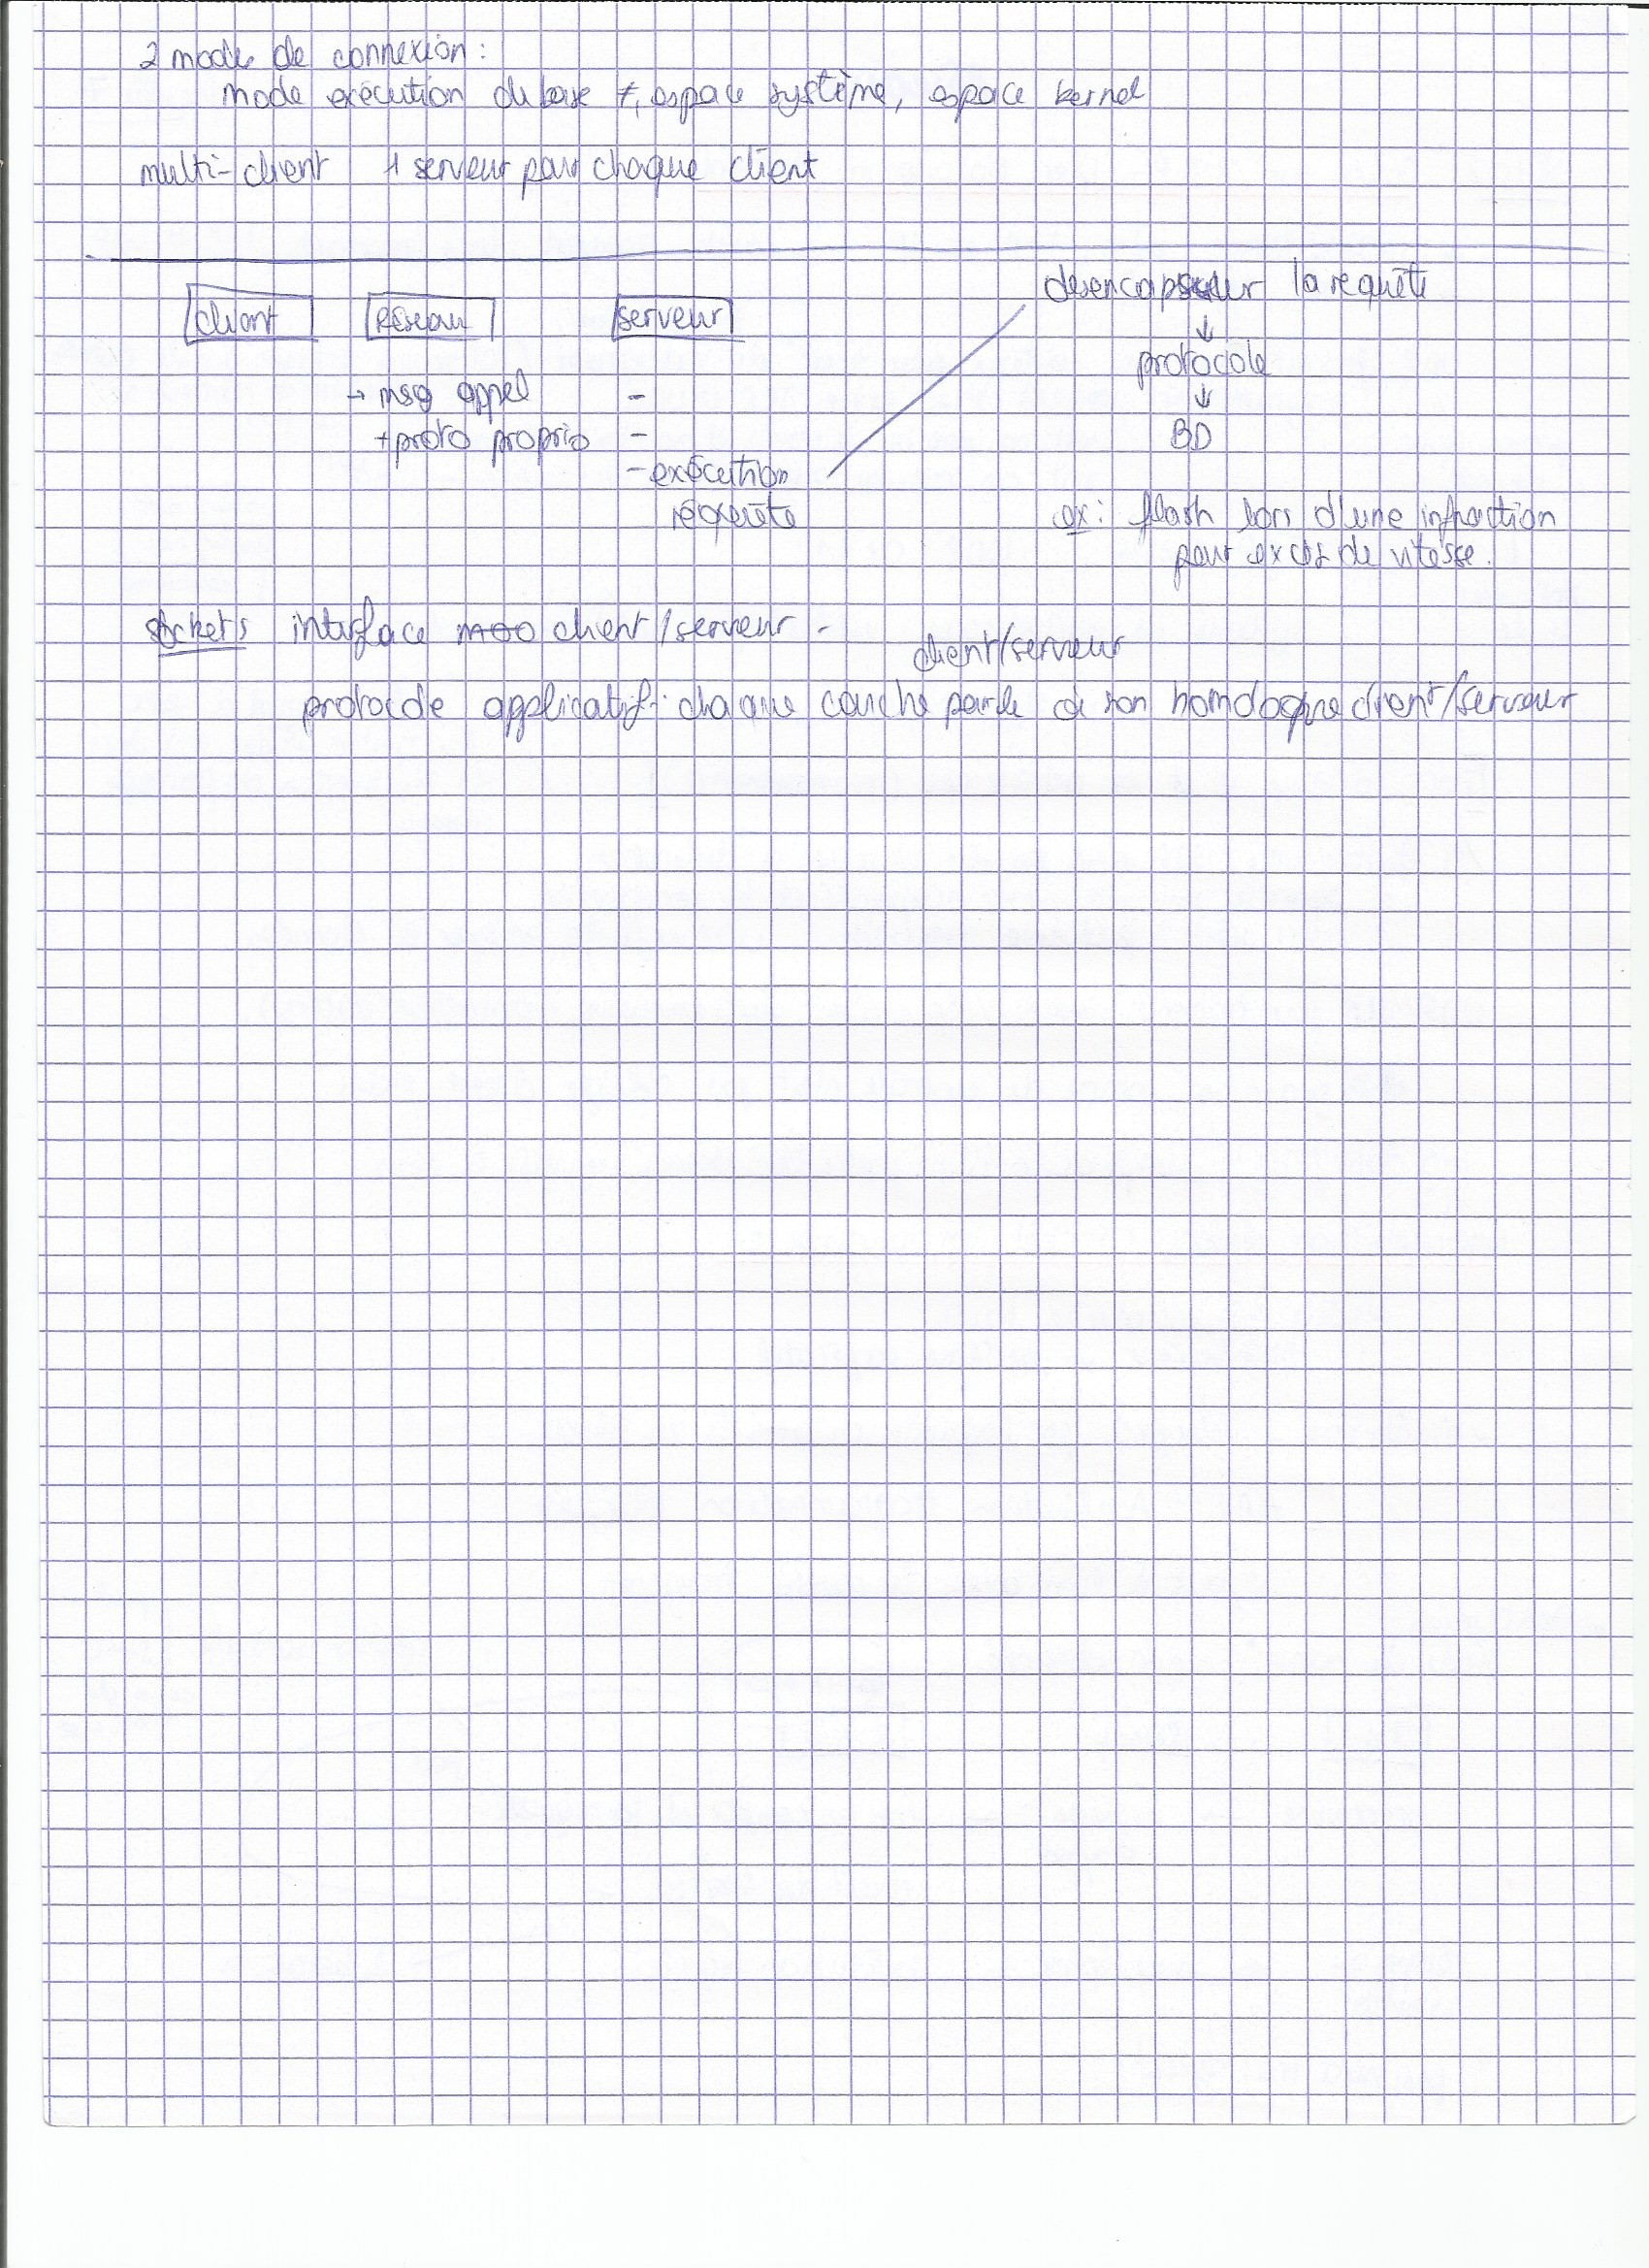 2 mode de connexion :
mode exécution du base ≠, espace système, espace kernel
multi-client 1 serveur pour chaque client
client Réseau serveur
→ msg appel -
+ proto proprio -
- exécution
requête
desencapsuler la requête
↓
protocole
↓
BD
ex : flash lors d'une infraction
pour excès de vitesse.
sockets interface client/serveur -
client/serveur
protocole applicatif : chaque couche parle à son homologue client/serveur